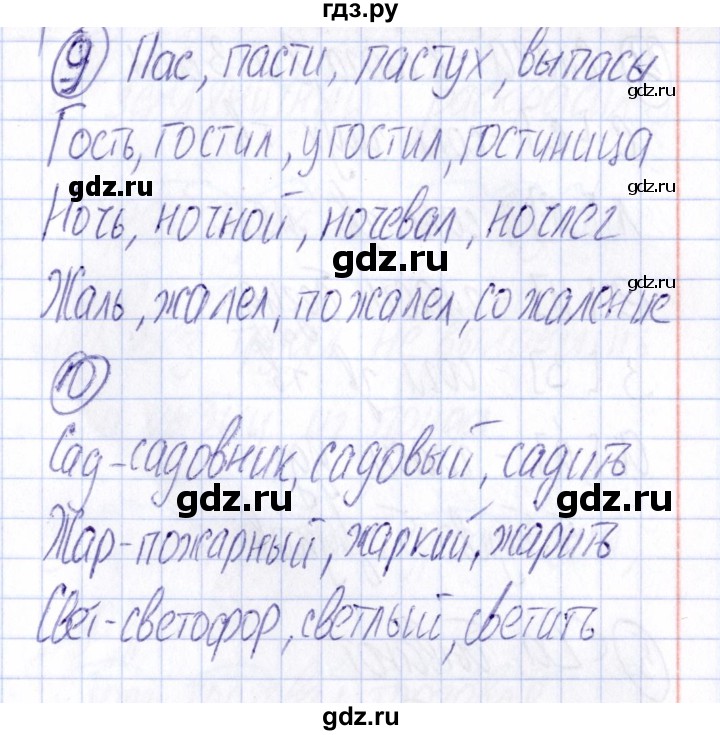 гдз.ру
9 Пас, пасти, пастух, выпасы
gdz.ru
Гость, гостил, угостил, гостиница
gdz.ru
gdz.ru
Ночь, ночной, ночевал, ночлег
gdz.ru
gdz.ru
Жаль, жалел, пожалел, сожаление
10
Сад-садовник, садовый, садить
gdz.ru
gdz.ru
Жар-пожарный, жаркий, жарить
Свет-светофор, светлый, светить
gdz.ru